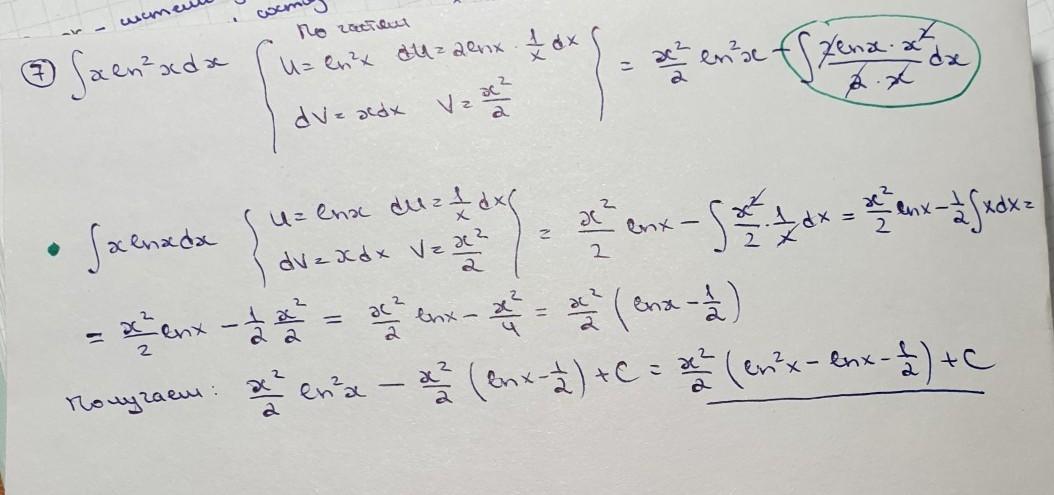 по частям
⑦ ∫xln²xdx { u=ln²x du=2lnx·1/x dx dv=xdx v=x²/2 } = x²/2 ln²x - ∫2lnx·x²/2·x dx
• ∫xlnxdx { u=lnx du=1/x dx dv=xdx v=x²/2 } = x²/2 lnx - ∫x²/2·1/x dx = x²/2 lnx - 1/2∫xdx =
= x²/2 lnx - 1/2 x²/2 = x²/2 lnx - x²/4 = x²/2 (lnx - 1/2)
Получаем: x²/2 ln²x - x²/2 (lnx - 1/2) + C = x²/2 (ln²x - lnx - 1/2) + C